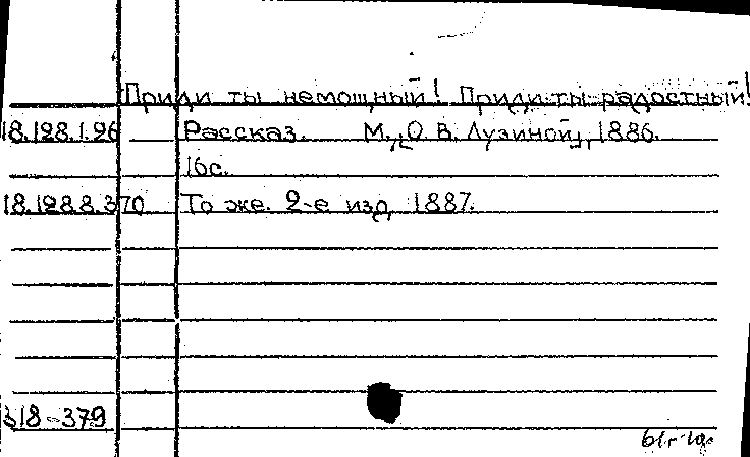 Приди ты немощный! Приди ты радостный!
18.128.1.96 Рассказ. М., [О. В. Лузиной], 1886.
16с.
18.128.8.370 То же. 2-е изд, 1887.
318-379